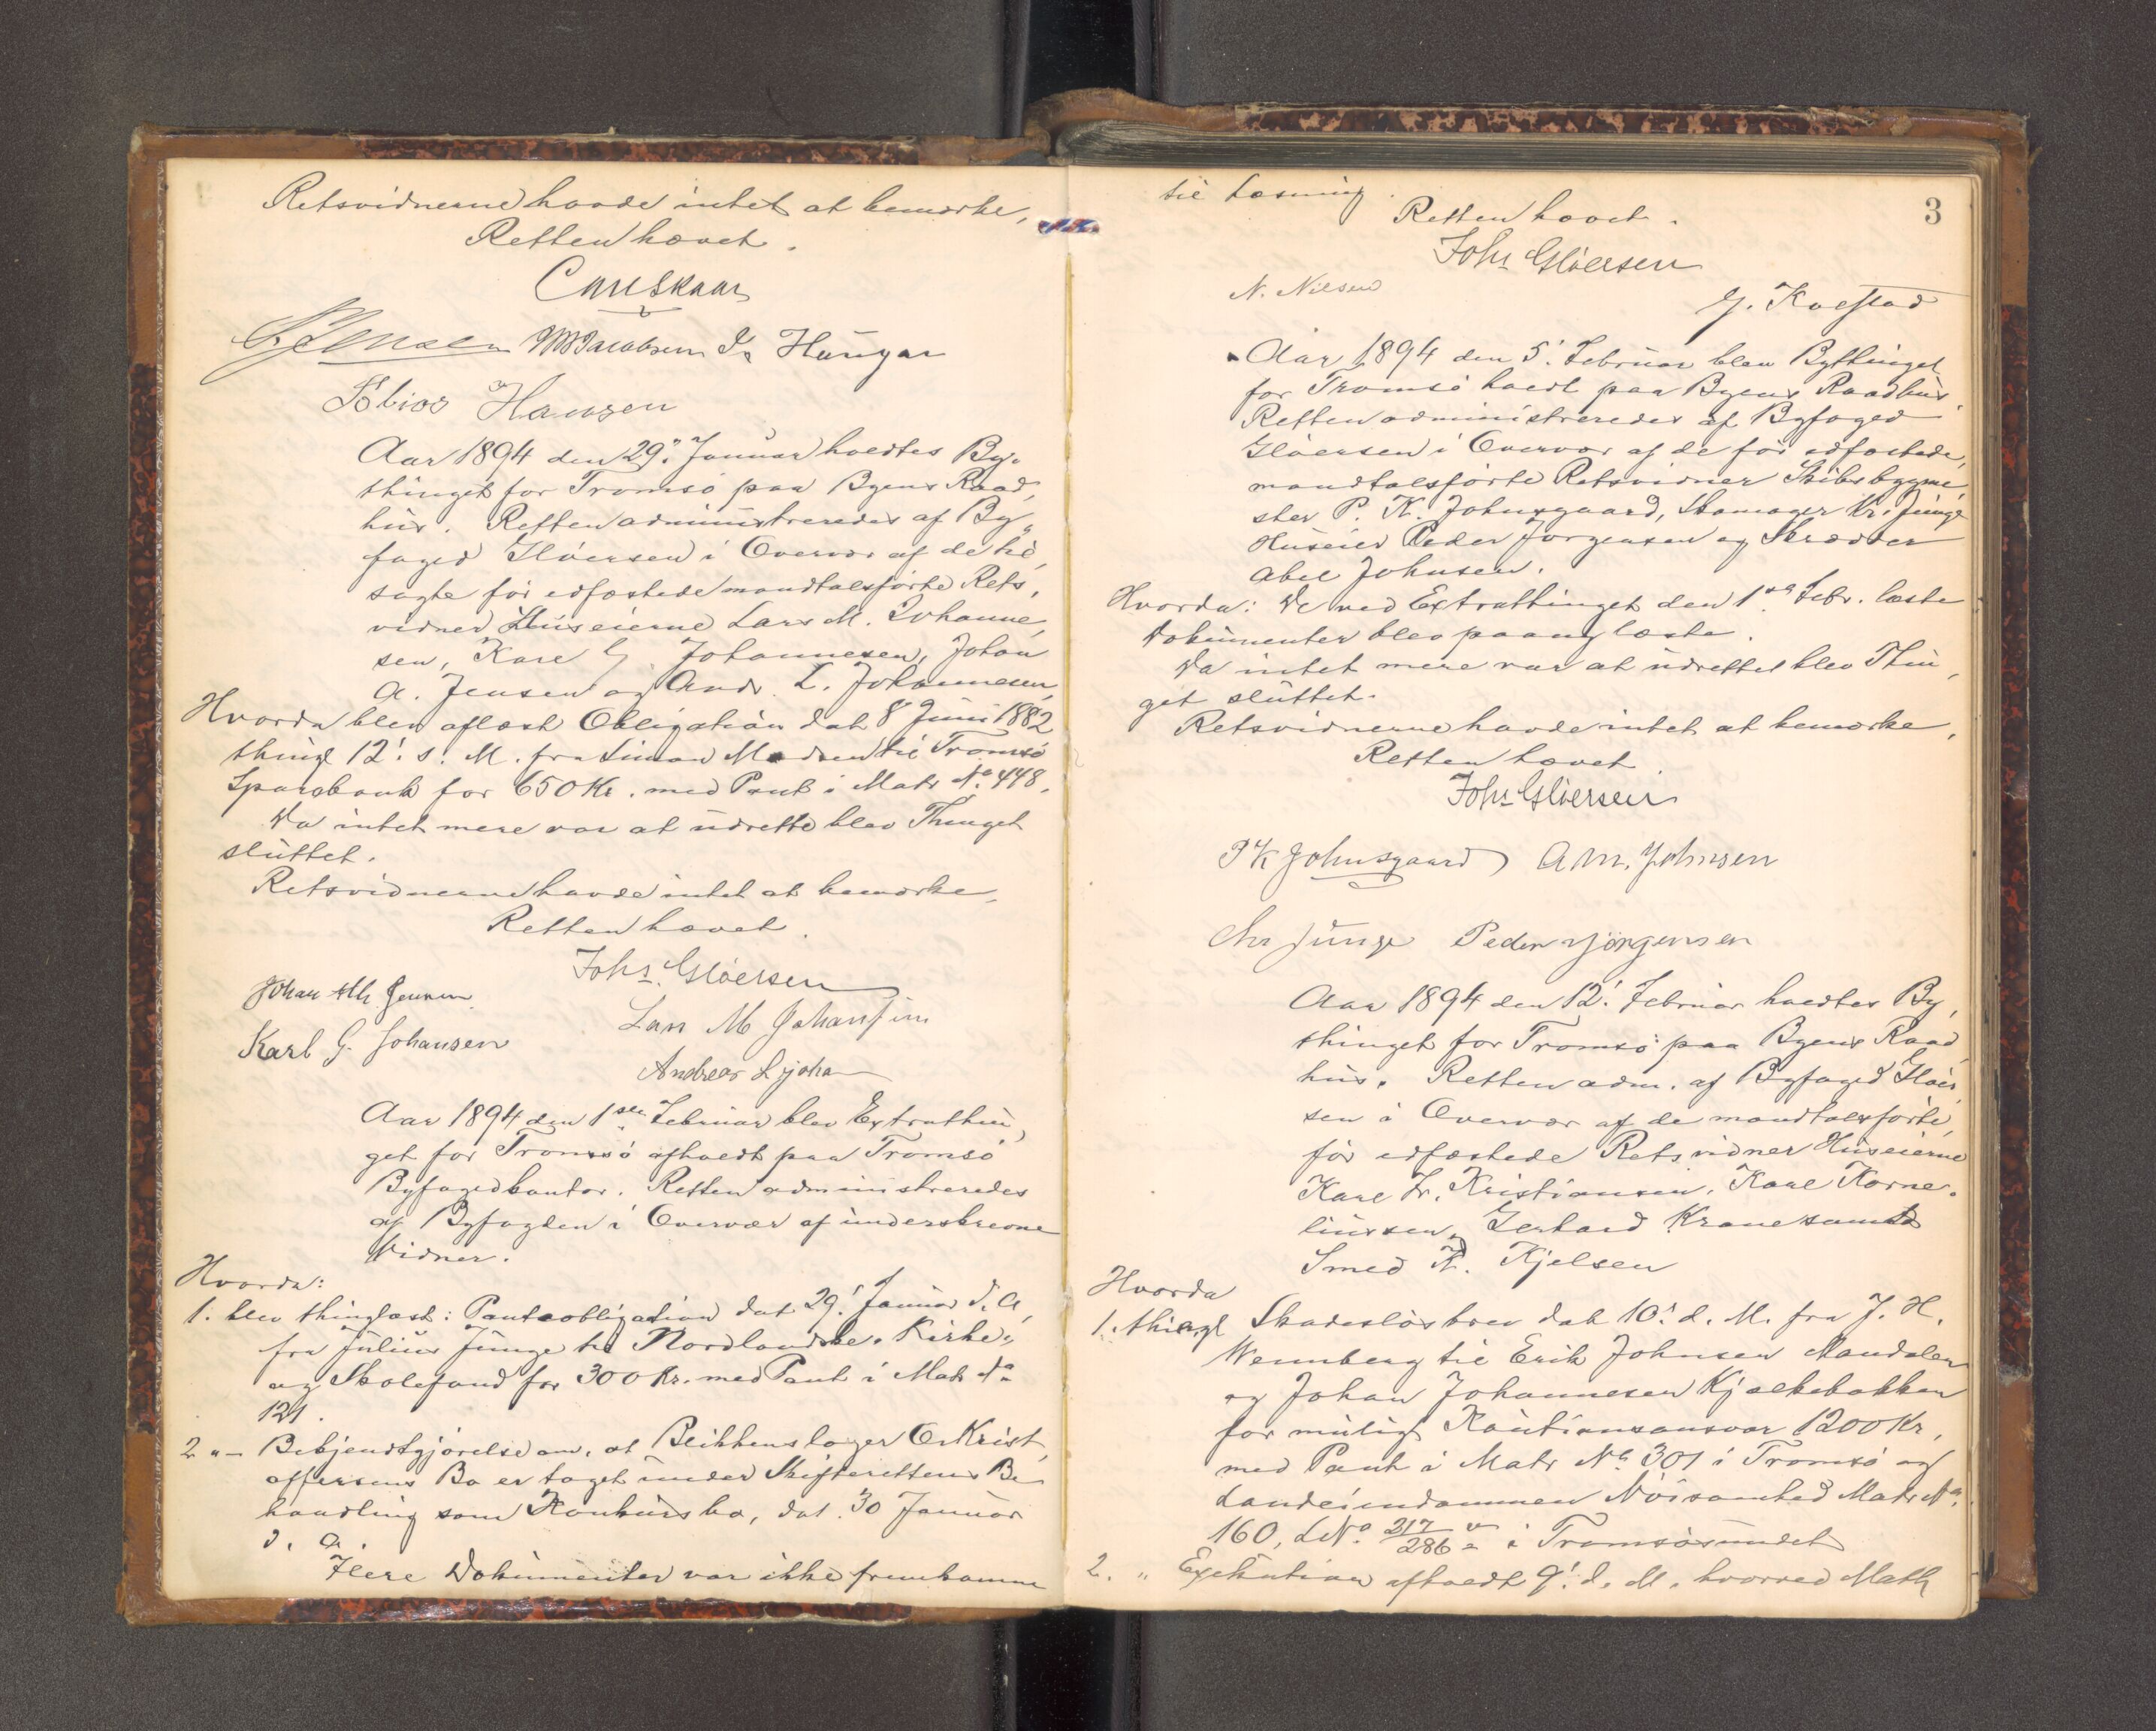 Retsvidnerne havde intet at bemærke,
Retten hævet.
Carl Skaar
M Jacobsen
Tobias Hansen
Aar 1894 den 29. Januar holdtes By-
thinget for Tromsö paa Byens Raad,
hus. Retten administreredes af By,
foged Glöersen i Overvær af de til,
sagte før edfæstede mandtalsførte Rets,
vidner Huseierne Lars M. Johanne,
sen, Karl G Johannesen, Johan
A. Jensen og Andr. L. Johannesen,
Hvorda blev aflæst Obligation dat 8 Juni 1882
thingl 12. s. M. fra Simon Madsen til Tromsö
Sparebank for 650 Kr. med Pant i Matr No. 448.
Da intet mere var at udrette blev Thinget
sluttet.
Retsvidnerne havde intet at bemærke,
Retten hævet.
Johs. Glöersen
Johan Jensen
Lars M Johansen
Karl G. Johansen
Andreas L Joha
Aar 1894 den 1ste Februar blev Extrathin,
get for Tromsö afholdt paa Tromsö
Byfogedkontor. Retten administreredes
af Byfogden i Overvær af underskrevne
Vidner.
Hvorda:
1. blev thinglæst: Panteobligation dat 29. Januar d. A,
fra Julius Junge til Nordlandske Kirke-
og Skolefond for 300 Kr. med Pant i Matr No
121.
2 " - Bekjendtgjørelse om, at Blikkenslager O. Krist,
offersens Bo er taget under Skifterettens Be
handling som Konkursbo, dat. 30 Januar
d. A.
Flere Dokumenter var ikke fremkomne
3
til Læsning.
Retten hævet.
Johs Glöersen
N. Nilsen
J. Kolstad
Aar 1894 den 5. Februar blev Bythinget
for Tromsö holdt paa Byens Raadhus.
Retten administreredes af Byfoged
Glöersen i Overvær af de før edfæstede,
mandtalsførte Retsvidner Skibsbygme,
ster P. K. Johnsgaard, Skomager Kr. Junge
Huseier Peder Jørgensen og Skrædder
Abel Johnsen.
Hvorda: De ved Extrathinget den 1ste Febr. læste
Dokumenter blev paany læste.
Da intet mere var at udrettet blev Thin,
get sluttet.
Retsvidnerne havde intet at bemærke,
Retten hævet.
Johs Glöersen
P K Johnsgaard A M. Johnsen
Chr Junge Peder Jörgensen
Aar 1894 den 12. Februar holdtes By,
thinget for Tromsö paa Byens Raad,
hus. Retten adm. af Byfoged Glöer,
sen i Overvær af de mandtalsførte,
før edfæstede Retsvidner Huseierne
Karl Fr. Kristiansen, Karl Korne-
liussen, Gerhard Krane samt
Smed K. Kjelsen
Hvorda
1. thingl Skadesløsbrev dat 10. d. M. fra J. H.
Wennberg til Erik Johnsen Mandalen
og Johan Johannesen Kjælkebakken
for muligt Kautionsansvar 1200 Kr,
med Pant i Matr No 301 i Tromsö og
Landeiendommen Matr No.
160, LNo. 217/286 i Tromsösundet
2. " Exekution afholdt 9. d. M. hvorved Math